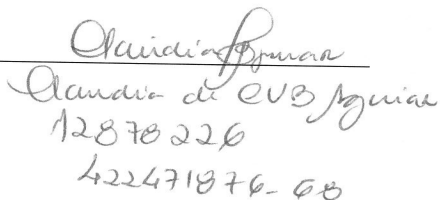 Claudia Aguiar
Claudia de CVB Aguiar
12878226
422471876-68